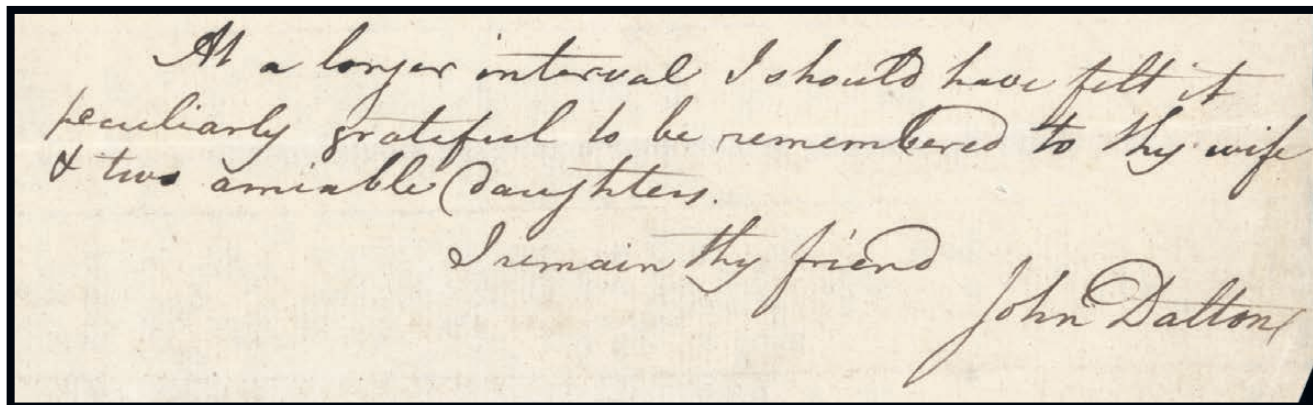 At a longer interval I should have felt it
peculiarly grateful to be remembered to thy wife
& two amiable daughters.
I remain thy friend
John Dalton